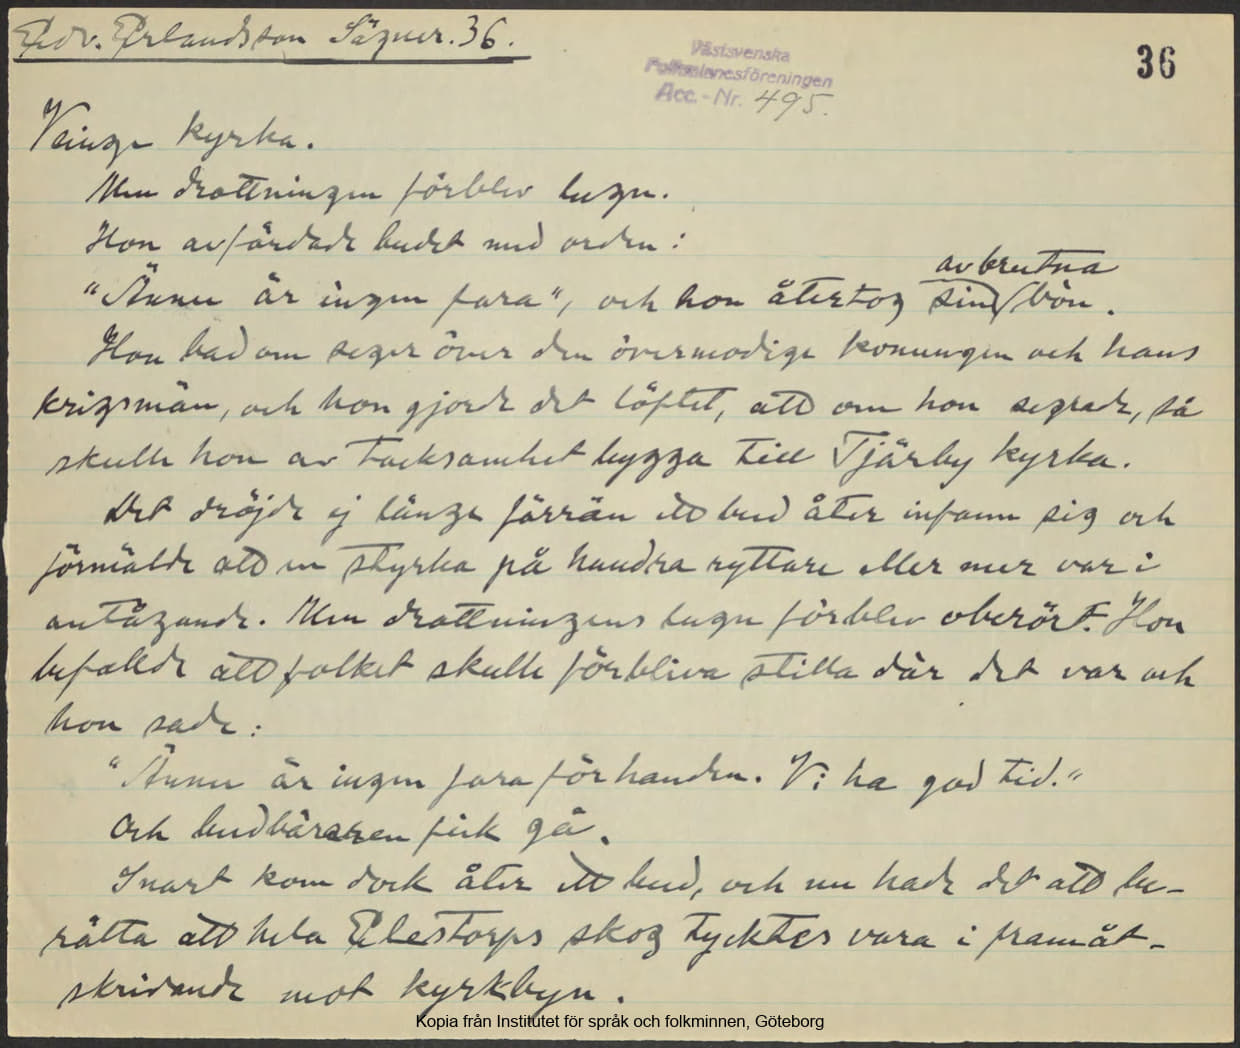 Edv. Erlandsson Sägner. 36.
36
Västsvenska
Folkminnesföreningen
Acc. - Nr. 495.
Veinge kyrka.
Men drottningen förblev lugn.
Hon avfärdade budet med orden:
avbrutna
"Ännu är ingen fara", och hon återtog sin bön.
Hon bad om seger över den övermodige konungen och hans
krigsmän, och hon gjorde det löftet, att om hon segrade, så
skulle hon av tacksamhet bygga till Tjärby kyrka.
Det dröjde ej länge förrän ett bud åter infann sig och
förmälde att en styrka på hundra ryttare eller mer var i
antågande. Men drottningens lugn förblev oberört. Hon
befallde att folket skulle förbliva stilla där det var och
hon sade:
"Ännu är ingen fara förhanden. Vi ha god tid."
Och budbäraren fick gå.
Snart kom dock åter ett bud, och nu hade det att be-
rätta att hela Elestorps skog tycktes vara i framåt-
skridande mot kyrkbyn.
Kopia från Institutet för språk och folkminnen, Göteborg